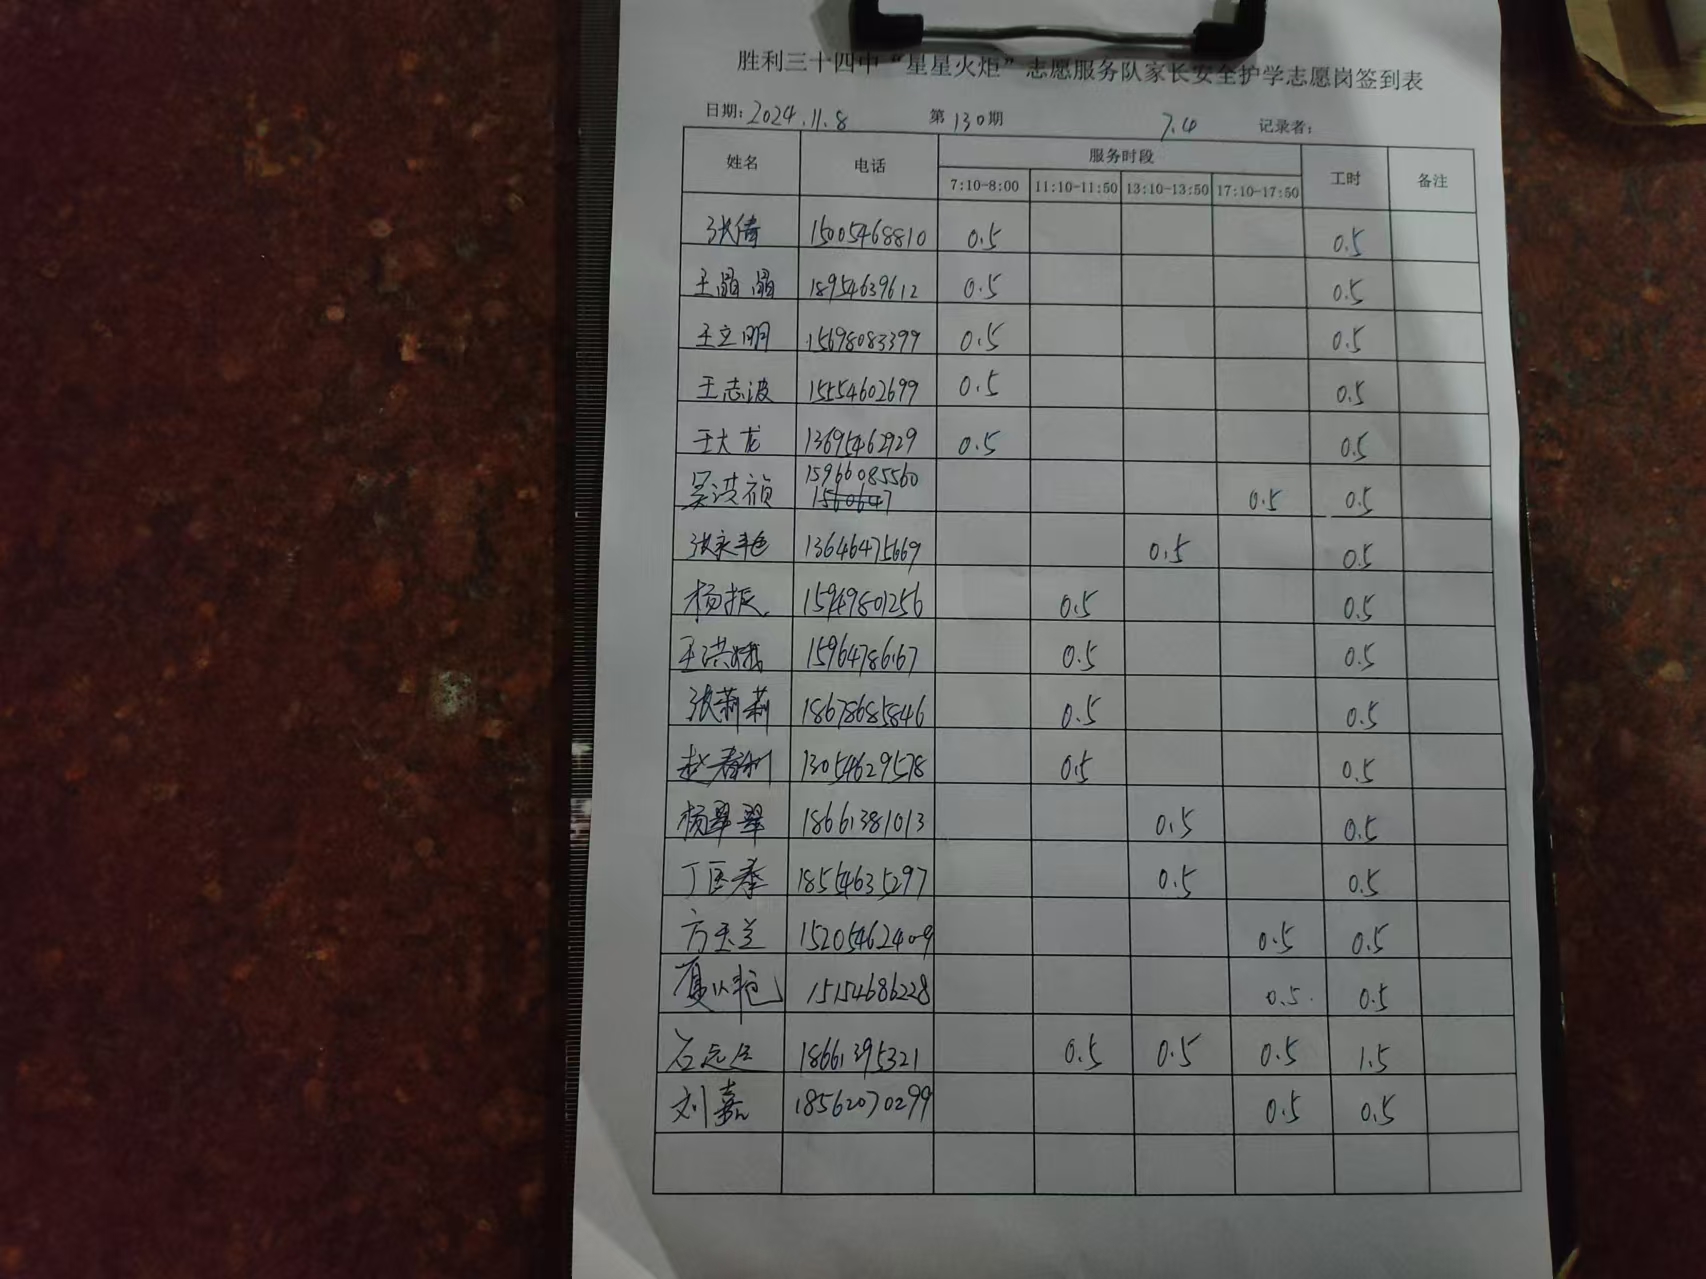 胜利三十四中“星星火炬”志愿服务队家长安全护学志愿岗签到表
日期: 2024.11.8 第130期 7.4 记录者:
姓名 电话 服务时段 工时 备注
7:10-8:00 11:10-11:50 13:10-13:50 17:10-17:50
张倩 15005468810 0.5 0.5
王晶晶 18954639612 0.5 0.5
王立明 15698083399 0.5 0.5
王志波 15554602699 0.5 0.5
王大龙 13695462929 0.5 0.5
吴洪祯 15966085560 0.5 0.5
1560647
张永艳 13646475669 0.5 0.5
杨振 15949801256 0.5 0.5
王洪娥 15964786167 0.5 0.5
张莉莉 18678685846 0.5 0.5
赵春利 13054629578 0.5 0.5
杨翠翠 18661381013 0.5 0.5
丁医春 18554635297 0.5 0.5
方玉兰 15205462409 0.5 0.5
15154686228 0.5 0.5
18661395321 0.5 0.5 0.5 1.5
刘嘉 18562070299 0.5 0.5